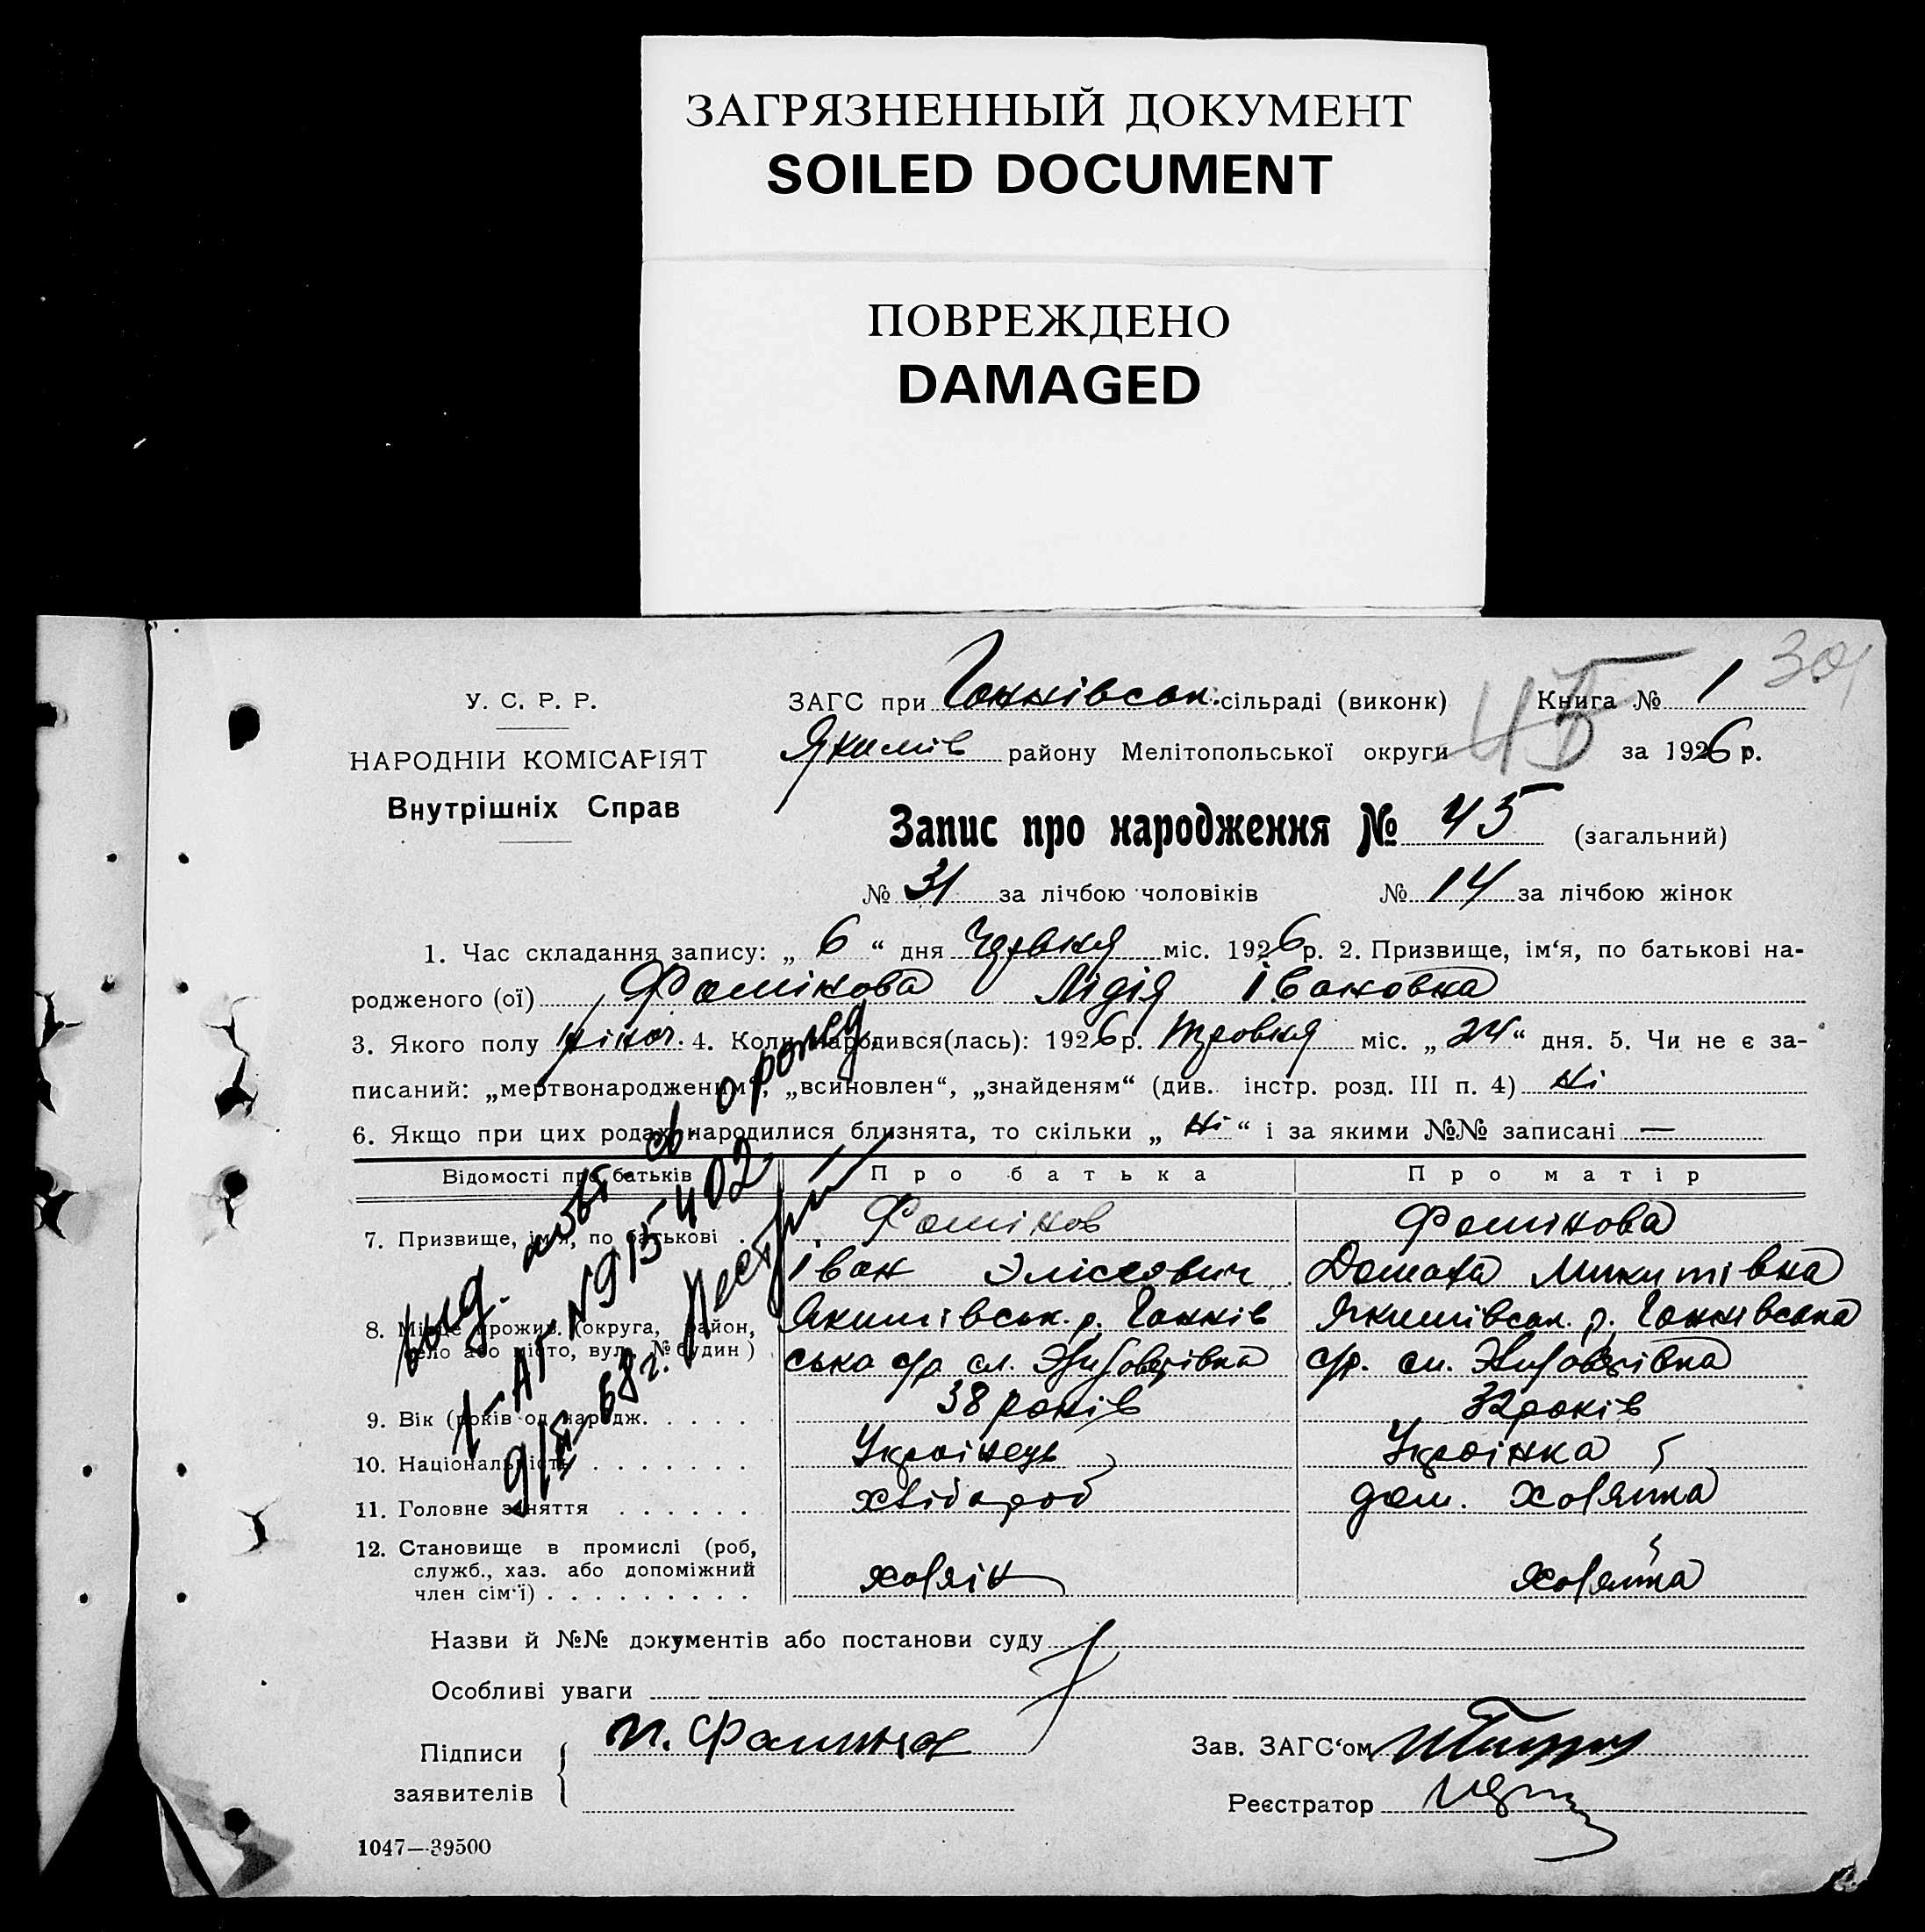 ЗАГРЯЗНЕННЫЙ ДОКУМЕНТ
SOILED DOCUMENT
ПОВРЕЖДЕНО
DAMAGED
У. С. Р. Р.
НАРОДНІЙ КОМІСАРІЯТ
Внутрішніх Справ
ЗАГС при Ганнівськ. сільраді (виконк) Книга № 1
Якимів району Мелітопольської округи за 1926 р.
45
Запис про народження № 45 (загальний)
№ 31 за лічбою чоловіків № 14 за лічбою жінок
1. Час складання запису: „ 6 “ дня Червня міс. 1926 р. 2. Призвище, ім‘я, по батькові на-
родженого (ої) Фомікова Лідія Івановна
3. Якого полу жіноч. 4. Коли народився(лась): 1926 р. Травня міс. „ 24 “ дня. 5. Чи не є за-
писаний: „мертвонародженим“, „всиновлен“, „знайденям“ (див. інстр. розд. III п. 4) Ні
6. Якщо при цих родах народилися близнята, то скільки „ Ні “ і за якими №№ записані —
Відомості про батьків Про батька Про матір
7. Призвище, ім‘я, по батькові . Фоміков Фомікова
Іван Елісеович Домаха Микитівна
8. Місце прожив. (округа, район, Якимівськ. р. Ганнів Якимівськ. р. Ганнівська
село або місто, вул., № будин) ська с/р сл. с/р. сл.
9. Вік (років од народж. . . . . . 38 років 32 років
10. Національність . . . . . . . Українець Українка
11. Головне заняття . . . . . . хлібороб дом. хозяйка
12. Становище в промислі (роб,
служб., хаз. або допоміжний
член сім‘ї) . . . . . . . . . хозяін хозяйка
Назви й №№ документів або постанови суду
Особливі уваги
Підписи
заявителів
Зав. ЗАГС‘ом
Реєстратор
1047—39500
выд. повт. св. о рожд.
I-АП №915402
68 г.